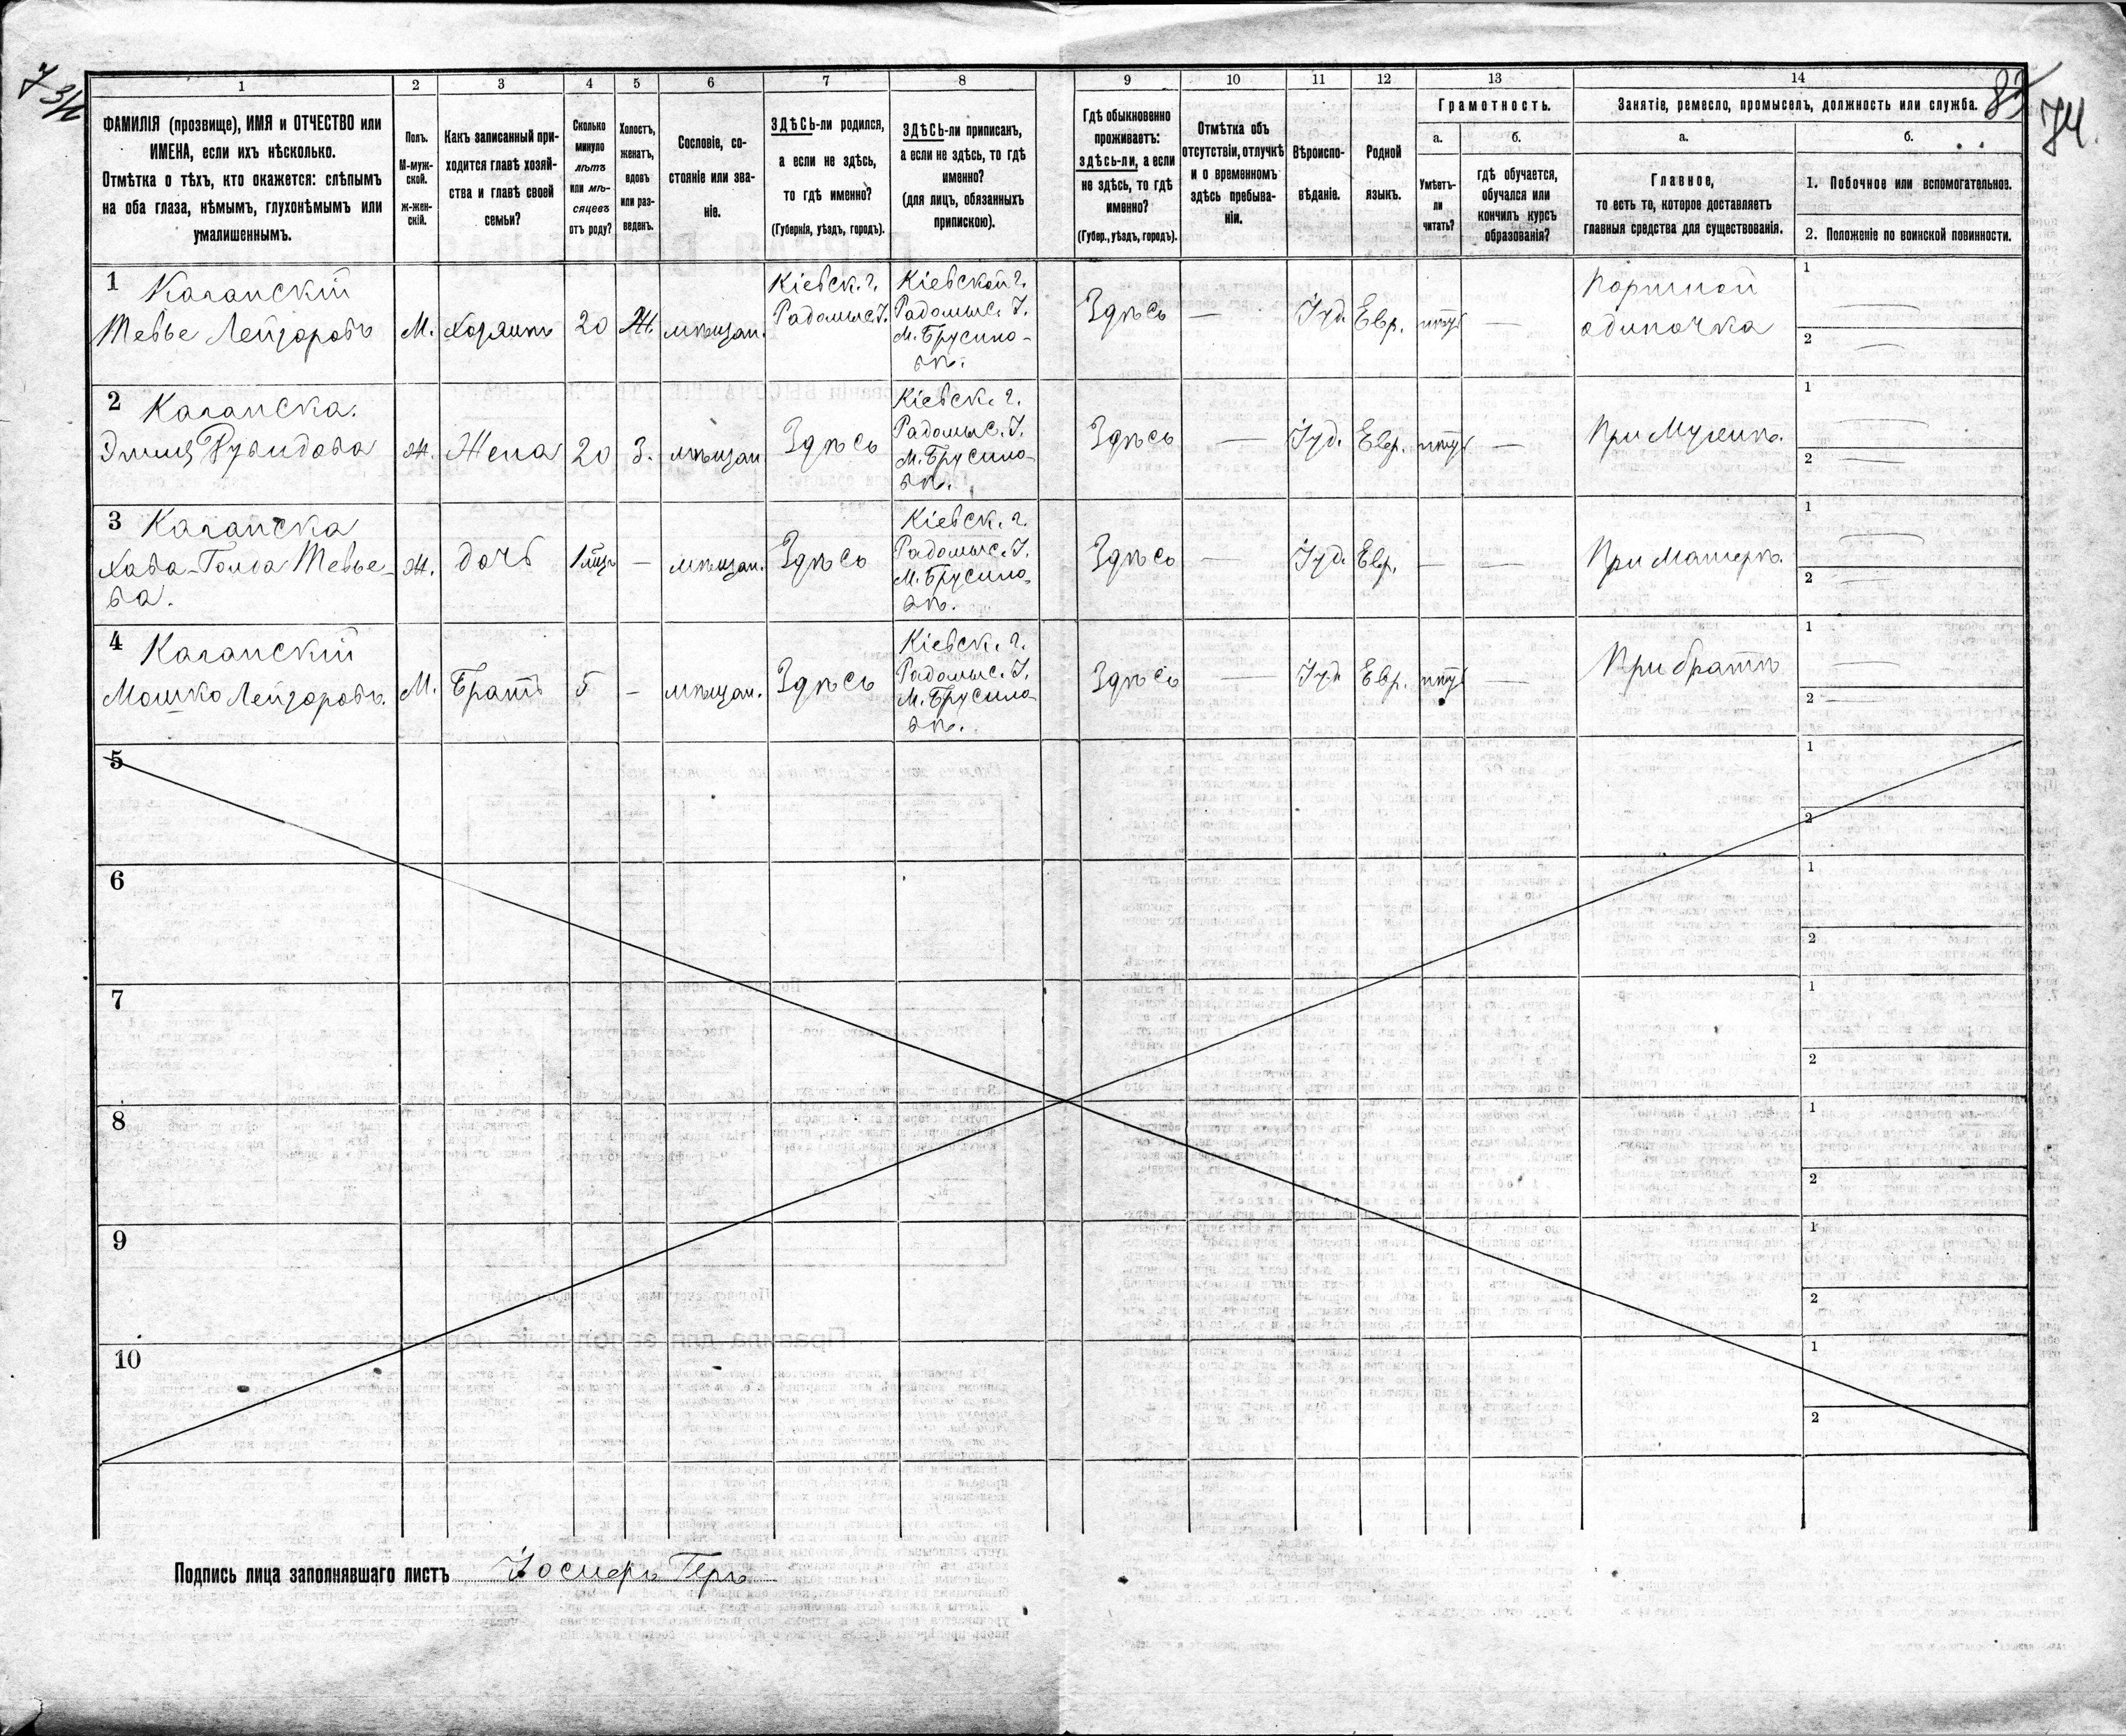 7
34
83
74.
1
2
3
4
5
6
7
8
9
10
11
12
13
14
ФАМИЛІЯ (прозвище), ИМЯ и ОТЧЕСТВО или
ИМЕНА, если ихъ нѣсколько.
Отмѣтка о тѣхъ, кто окажется: слѣпымъ
на оба глаза, нѣмымъ, глухонѣмымъ или
умалишеннымъ.
Полъ.
М-муж-
ской.
ж-жен-
скій.
Какъ записанный при-
ходится главѣ хозяй-
ства и главѣ своей
семьи?
Сколько
минуло
лѣтъ
или мѣ-
сяцевъ
отъ роду?
Холостъ,
женатъ,
вдовъ
или раз-
веденъ.
Сословіе, со-
стояніе или зва-
ніе.
ЗДѢСЬ-ли родился,
а если не здѣсь,
то гдѣ именно?
(Губернія, уѣздъ, городъ).
ЗДѢСЬ-ли приписанъ,
а если не здѣсь, то гдѣ
именно?
(для лицъ, обязанныхъ
припискою).
Гдѣ обыкновенно
проживаетъ:
здѣсь-ли, а если
не здѣсь, то гдѣ
именно?
(Губер., уѣздъ, городъ).
Отмѣтка объ
отсутствіи, отлучкѣ
и о временномъ
здѣсь пребыва-
ніи.
Вѣроиспо-
вѣданіе.
Родной
языкъ.
Грамотность.
а.
Умѣетъ-
ли
читать?
б.
гдѣ обучается,
обучался или
кончилъ курсъ
образованія?
Занятіе, ремесло, промыселъ, должность или служба.
а.
Главное,
то есть то, которое доставляетъ
главныя средства для существованія.
б.
1. Побочное или вспомогательное.
2. Положеніе по воинской повинности.
1
Каганскій
Тевье Лейзоровъ
М.
хозяинъ
20
Ж.
мѣщан.
Кіевск. г.
Радомыс. У.
Кіевской г.
Радомыс. У.
М. Брусило-
вѣ.
Здѣсь
—
Іуд.
Евр.
нѣтъ
—
Портной
одиночка
1
2
2
Каганска.
Рувидова
ж.
Жена
20
З.
мѣщан
Здѣсь
Кіевск. г.
Радомыс. У.
М. Брусило-
вѣ.
Здѣсь
—
Іуд.
Евр.
нѣтъ
—
При Мужѣ.
1
2
3
Каганска
Хава-Голда Тевье-
ва.
ж.
дочь
1 мѣц
—
мѣщан.
Здѣсь
Кіевск. г.
Радомыс. У.
М. Брусило-
вѣ.
Здѣсь
—
Іуд.
Евр.
—
—
При Матерѣ.
1
2
4
Каганскій
Мошко Лейзоровъ.
М.
Братъ
5
—
мѣщан.
Здѣсь
Кіевск. г.
Радомыс. У.
М. Брусило-
вѣ.
Здѣсь
—
Іуд
Евр.
нѣтъ
—
При братѣ
1
2
5
1
2
6
1
2
7
1
2
8
1
2
9
1
2
10
1
2
Подпись лица заполнявшаго листъ